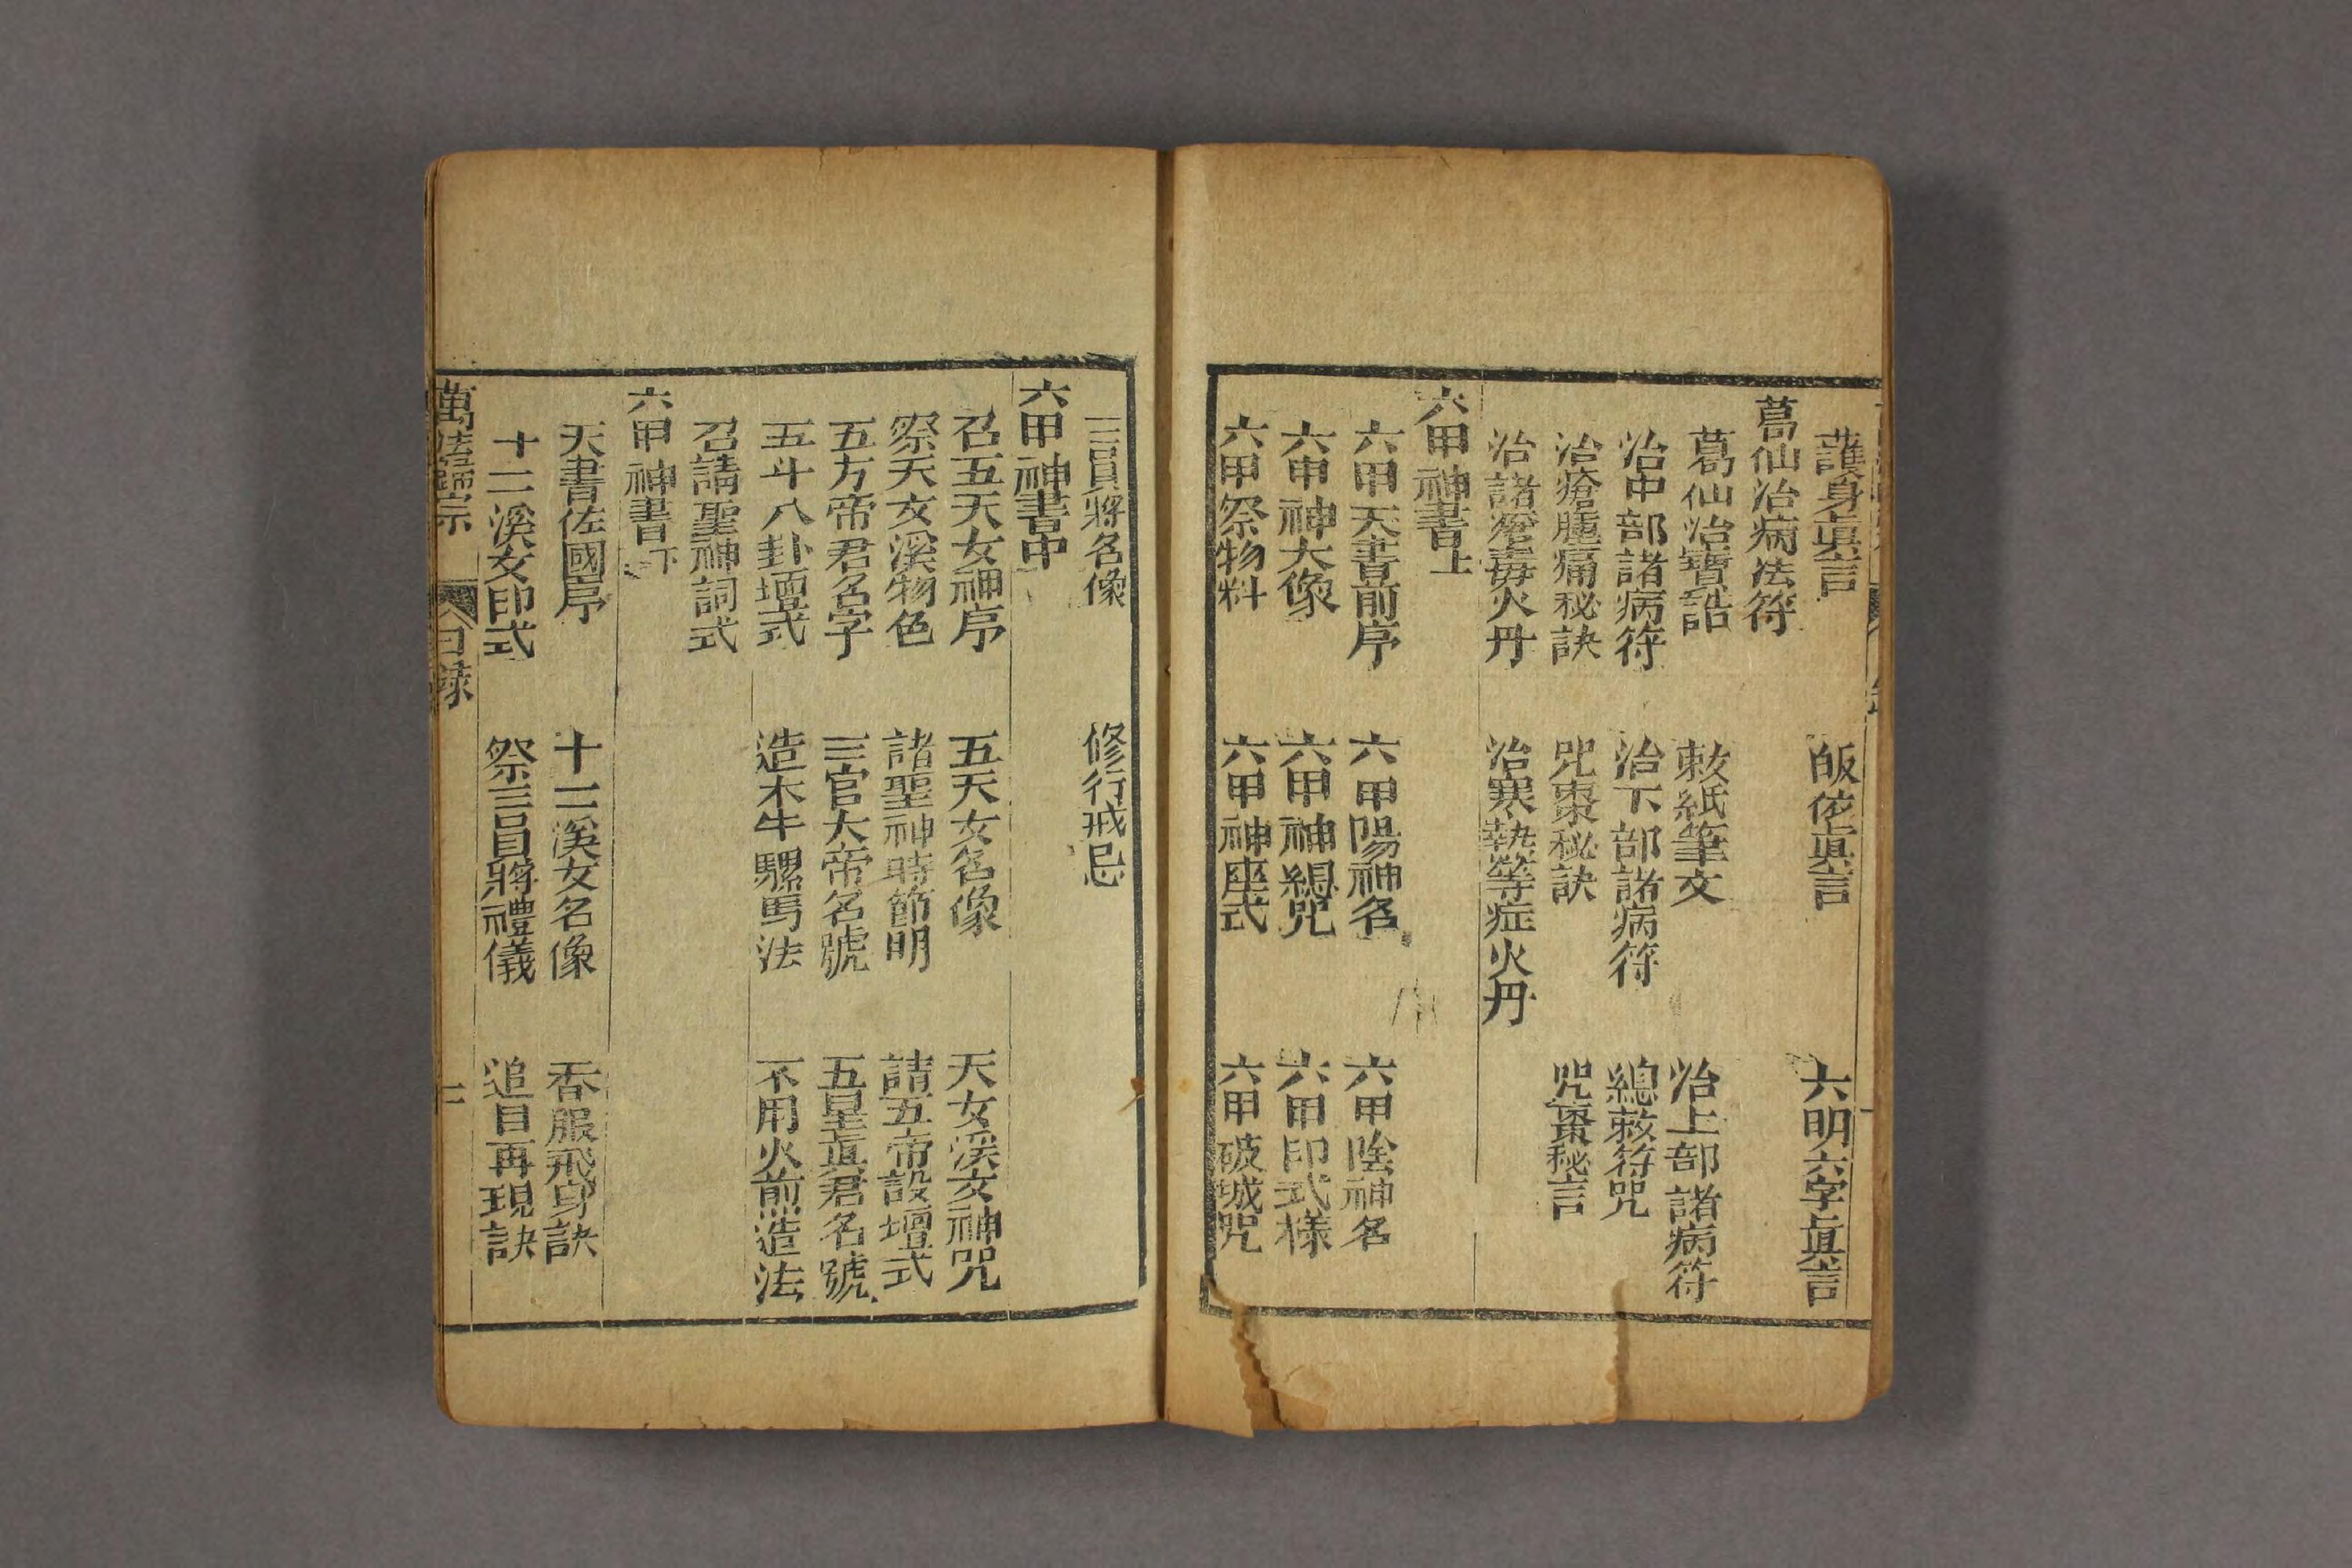 護身眞言　皈依眞言　六明六字眞言
葛仙治病法符
葛仙治寶誥　敕紙筆文　治上部諸病符
治中部諸病符　治下部諸病符　總敕符咒
治瘡腫痛秘訣　咒棗秘訣　咒棗秘言
治諸瘡毒火丹　治寒熱等症火丹
六甲神書上
六甲天書前序　六甲陽神名　六甲陰神名
六甲神大像　六甲神總咒　六甲印式樣
六甲祭物料　六甲神座式　六甲破城咒
三員將名像　修行戒忌
六甲神書中
召五天女神序　五天女名像　天女溪女神咒
祭天女溪物色　諸聖神時節明　請五帝設壇式
五方帝君名字　三官大帝名號　五星眞君名號
五斗八卦壇式　造木牛騾馬法　不用火煎造法
召請聖神詞式
六甲神書下
天書佐國序　十二溪女名像　香服飛身訣
十二溪女印式　祭三員將禮儀　追目再現訣
萬法歸宗　目錄　二